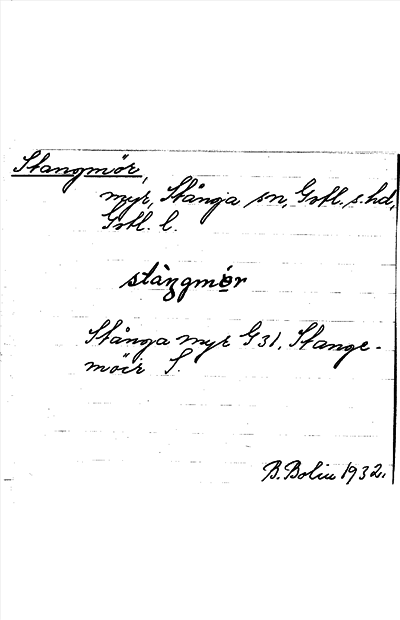 Stangmör,
myr, Stånga sn, Gotl. s. hd,
Gotl. l.
stàŋgmör
Stånga myr G 31. Stange-
möir S.
B. Bolin 1932.